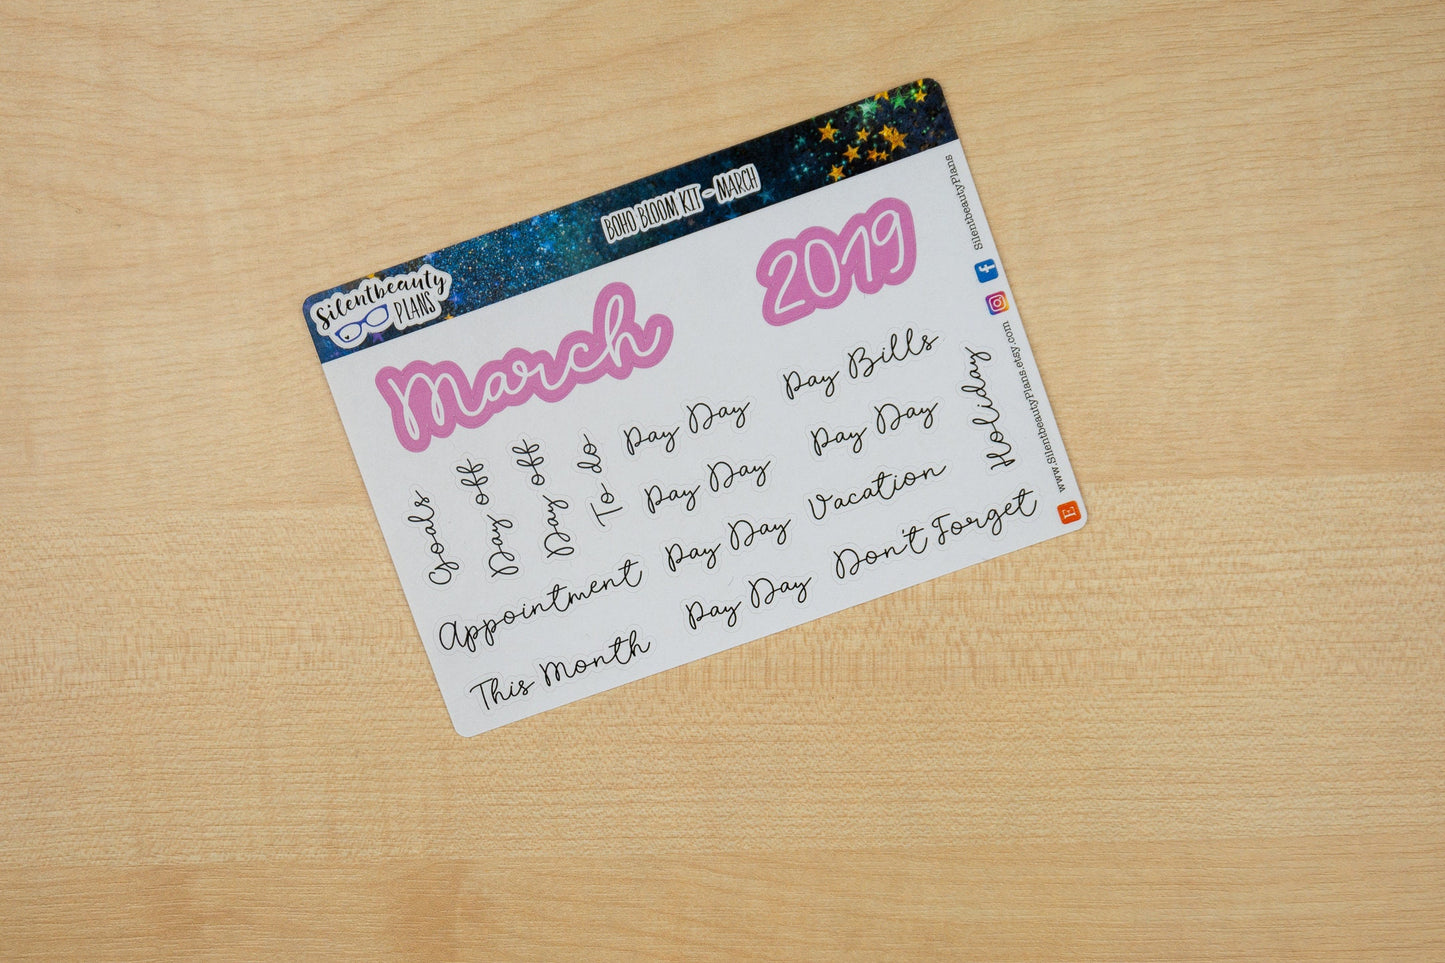 Silentbeauty
PLANS
BOHO BLOOM KIT - MARCH
March
2019
Goals
Day off
Day off
To do
Pay Day
Pay Day
Pay Day
Pay Day
Pay Bills
Pay Day
Vacation
Don't Forget
Holiday
Appointment
This Month
SilentbeautyPlans
www.SilentbeautyPlans.etsy.com
f
E